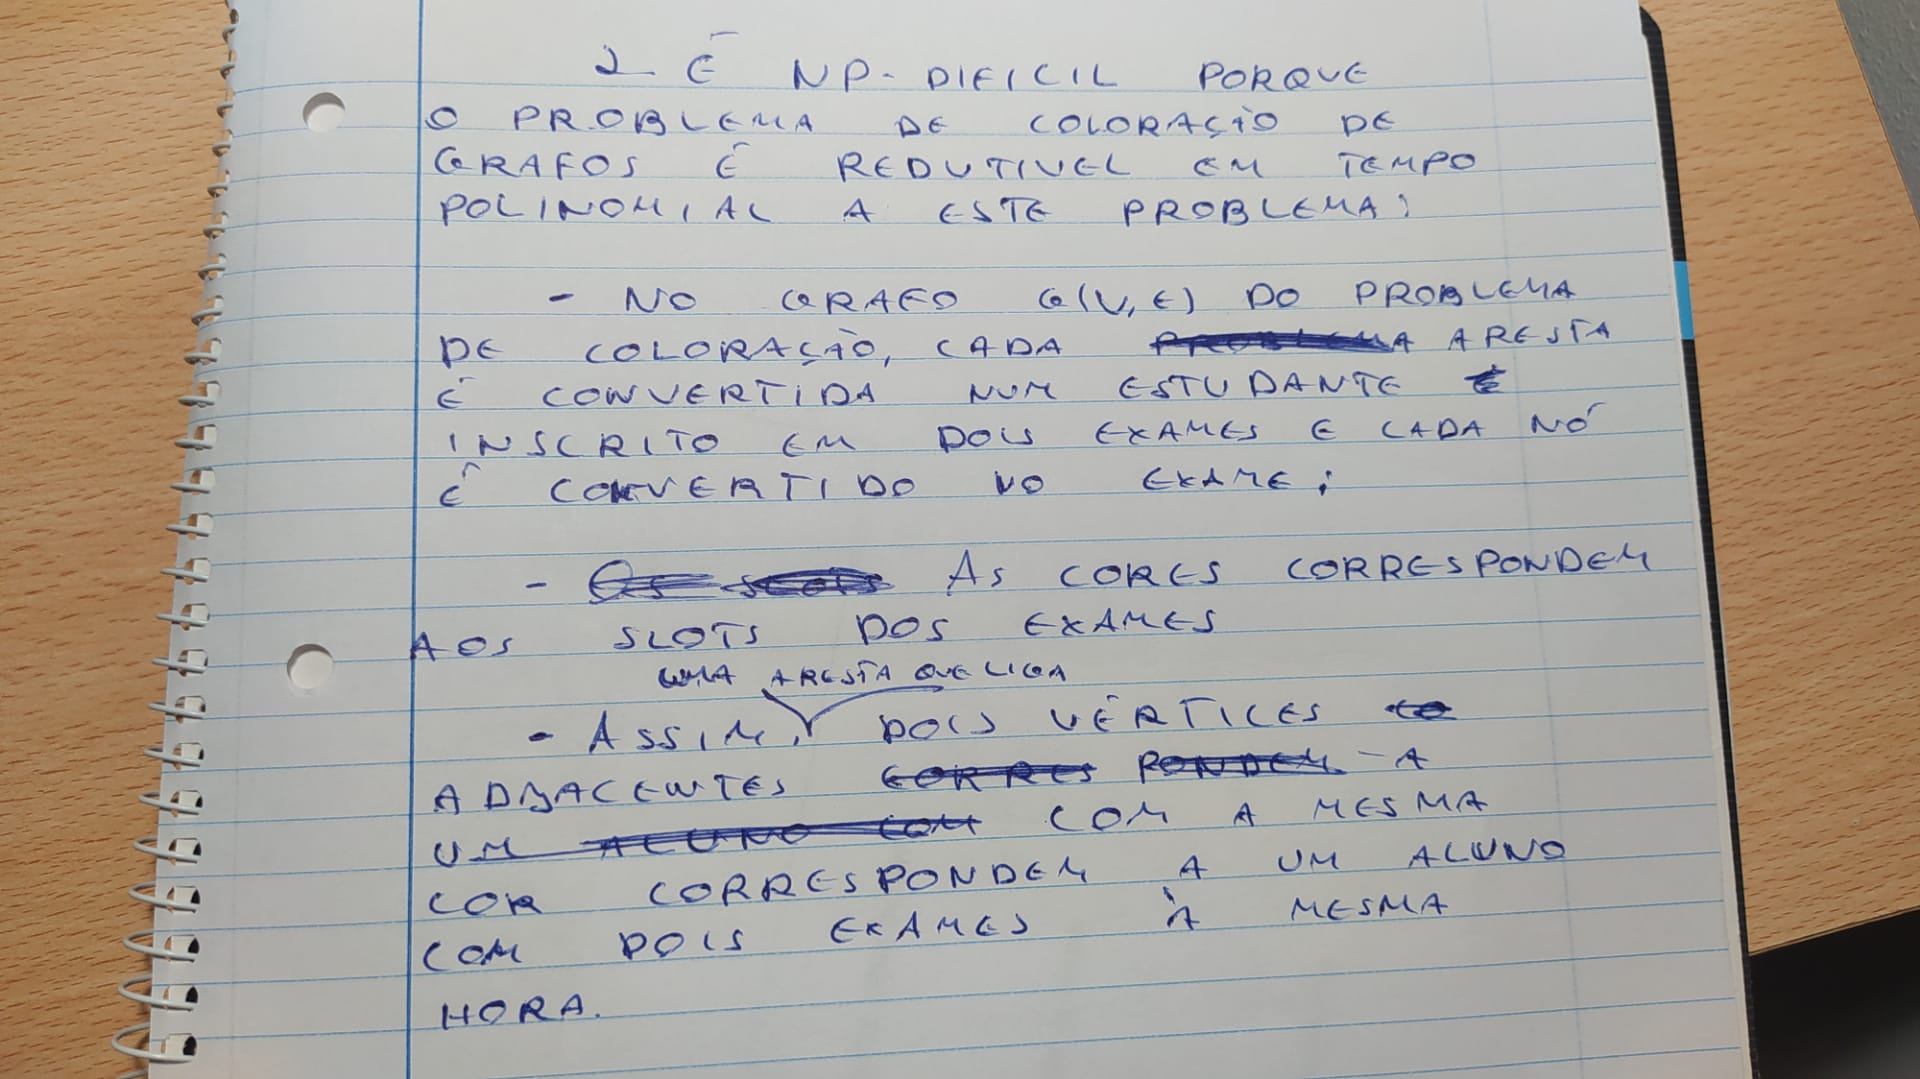 2 É NP-DIFICIL PORQUE
O PROBLEMA DE COLORAÇÃO DE
GRAFOS É REDUTIVEL EM TEMPO
POLINOMIAL A ESTE PROBLEMA:
- NO GRAFO G(V,E) DO PROBLEMA
DE COLORAÇÃO, CADA PROBLEMA ARESTA
É CONVERTIDA NUM ESTUDANTE E
INSCRITO EM DOIS EXAMES E CADA NÓ
É CONVERTIDO NO EXAME;
- Os SLOTS AS CORES CORRESPONDEM
AOS SLOTS DOS EXAMES
UMA ARESTA QUE LIGA
- ASSIM, DOIS VÉRTICES
ADJACENTES CORRES PONDEM - A
UM ALUNO COM COM A MESMA
COR CORRESPONDEM A UM ALUNO
COM DOIS EXAMES À MESMA
HORA.